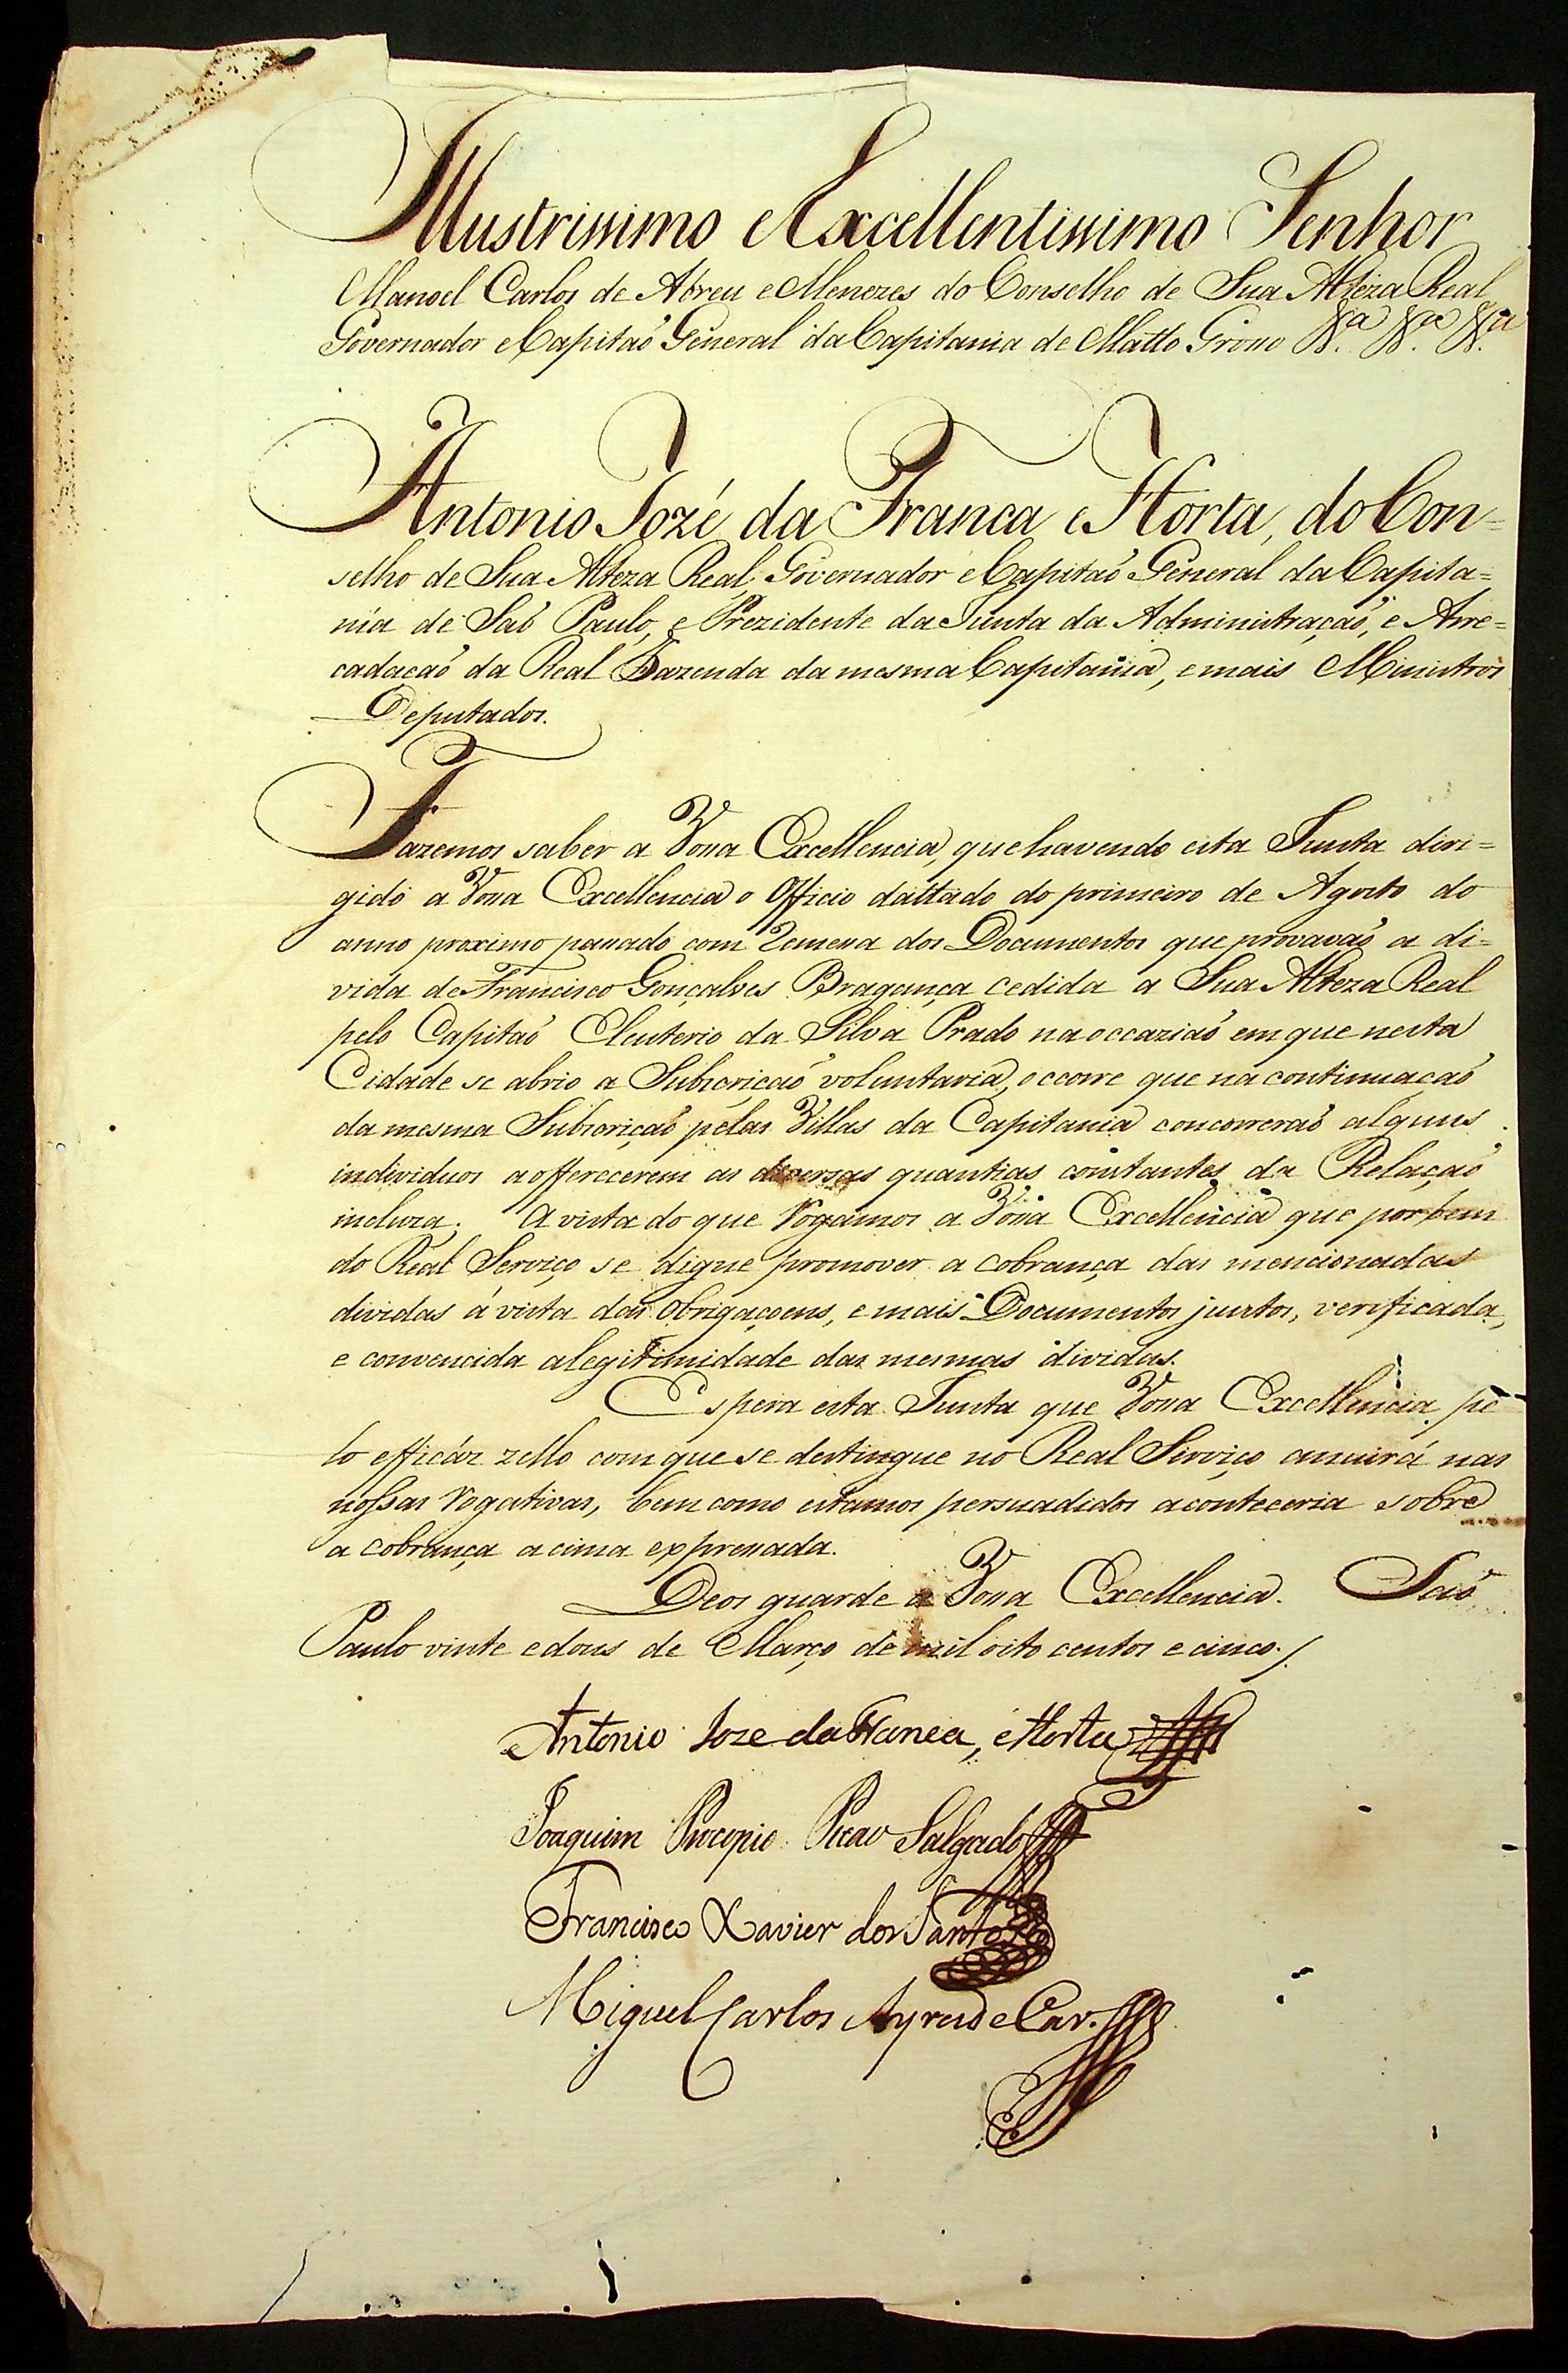 Illustrissimo e Excellentissimo Senhor
Manoel Carlos de Abreu e Menezes do Conselho de Sua Alteza Real
Governador e Capitaõ General da Capitania de Matto Grosso &.ª &.ª &.ª
Antonio Jozé da Franca e Horta, do Con=
selho de Sua Alteza Real, Governador e Capitaõ General da Capita=
nia de Saõ Paulo, e Prezidente da Junta da Administraçaõ, e Arre=
cadaçaõ da Real Fazenda da mesma Capitania, e mais Ministros
Deputados.
Fazemos saber a Vossa Excellencia, que havendo esta Junta diri=
gido a Vossa Excellencia o Officio dattado do primeiro de Agosto do
anno proximo passado com Remessa dos Documentos que provavaõ a di=
vida de Francisco Gonçalves Bragança cedida a Sua Alteza Real
pelo Capitaõ Eleuterio da Silva Prado na occaziaõ em que nesta
Cidade se abrio a Subscriçaõ voluntaria, occorre que na continuaçaõ
da mesma Subscriçaõ pelas Villas da Capitania concorreraõ alguns
individuos a offerecerem as diversas quantias constantes da Relaçaõ
incluza. A vista do que Rogamos a Vossa Excellencia que por bem
do Real Serviço se digne promover a cobrança das mencionadas
dividas á vista das Obrigaçoens, e mais Documentos juntos, verificada,
e convencida a legitimidade das mesmas dividas.
Espera esta Junta que Vossa Excellencia pe
lo efficáz zello com que se destingue no Real Serviço annuirá nas
nossas Rogativas, bem como estamos persuadidos aconteceria sobre
a cobrança acima expressada.
Deos guarde a Vossa Excellencia. Saõ
Paulo vinte e dous de Março de mil oito centos e cinco./.
Antonio Joze da Franca, e Horta
Joaquim Procopio Picao Salgado
Francisco Xavier dos Santos
Miguel Carlos Ayres de Car.